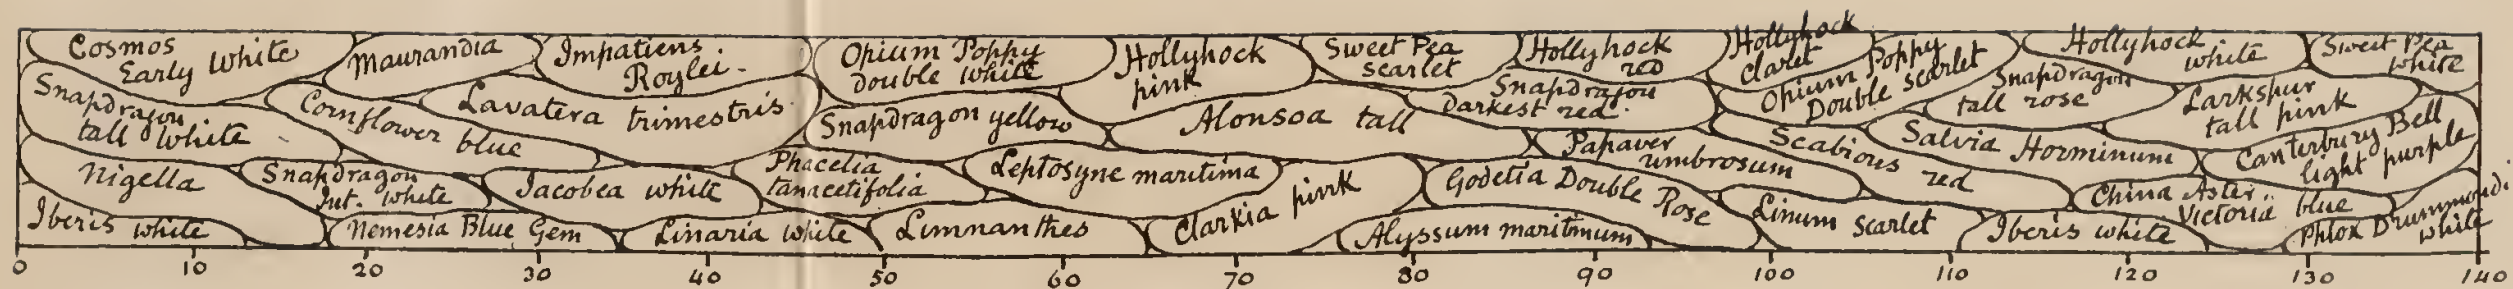 Cosmos
Early White
Maurandia
Impatiens
Roylei.
Opium Poppy
Double White
Hollyhock
pink
Sweet Pea
scarlet
Hollyhock
red
Hollyhock
claret
Opium Poppy
Double scarlet
Hollyhock
white
Sweet Pea
white
Snapdragon
tall white
Cornflower blue
Lavatera trimestris.
Snapdragon yellow
Alonsoa tall
Snapdragon
Darkest red.
Snapdragon
tall rose
Larkspur
tall pink
Nigella
Snapdragon
Int. white
Jacobea white
Phacelia
tanacetifolia
Leptosyne maritima
Papaver
umbrosum
Scabious
red
Salvia Horminum
Canterbury Bell
light purple
Iberis white
Nemesia Blue Gem
Linaria white
Limnanthes
Clarkia pink
Alyssum maritimum
Godetia Double
Rose
Linum scarlet
Iberis white
China Aster
Victoria blue
Phlox Drummondi
white
0 10 20 30 40 50 60 70 80 90 100 110 120 130 140